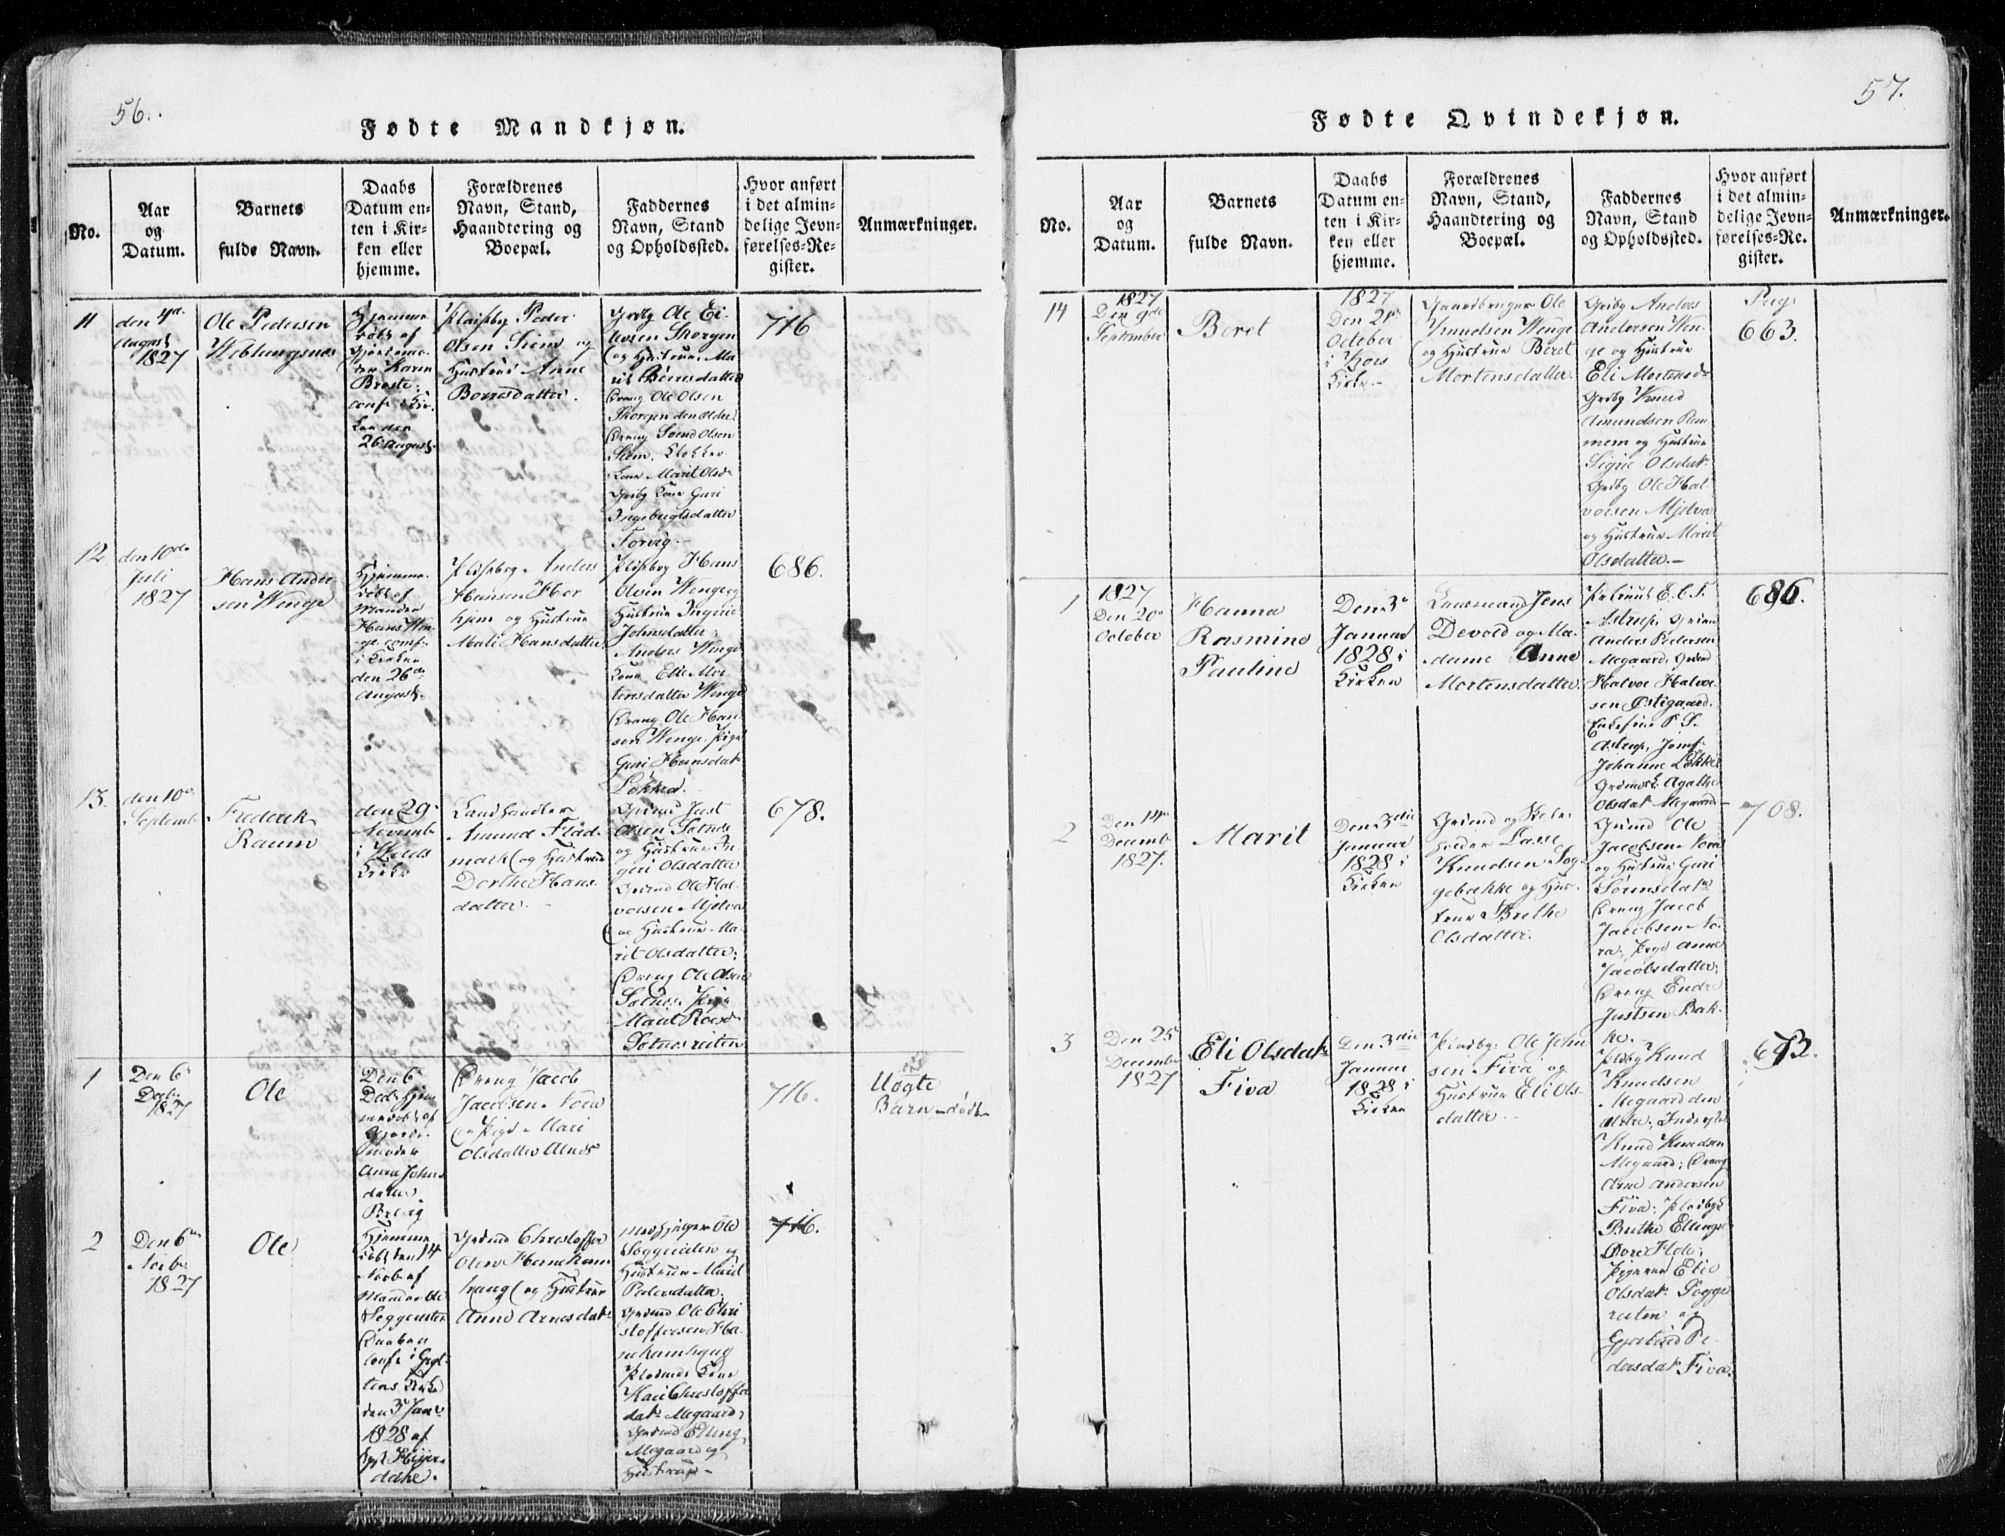 56.
Fødte Mandkjøn.
No.
Aar
og
Datum.
Barnets
fulde Navn.
Daabs
Datum en-
ten i Kir-
ken eller
hjemme.
Forældrenes
Navn, Stand,
Haandtering og
Boepæl.
Faddernes
Navn, Stand
og Opholdssted.
Hvor anført
i det almin-
delige Jevn-
førelses-Re-
gister.
Anmærkninger.
11
den 4de
August
1827
Ole Pedersen
Weblungsnes
Hjemme
døbt af
Karen
Broste;
conf. i Kir-
ken den
26 August.
Peder
Olsen Siem og
Hustrue Anne
Børresdatter.
Ole Ei-
Skorgen
og Hustrue Ma-
rit
Dreng Ole Olsen
Skorgen den ældre
Dreng Svend Olsen
Siem, Klokker
Kone Marit Olsd
Kone Guri
Ingebrigtsdatter
Torvig.
716
12
den 10de
Juli
1827
Hans Ander-
sen Wenge
Hjemme-
døbt af
Manden
Hans Wen-
ge conf.
i Kirken
den 26de
August.
Anders
Hansen Hor
hjem og Hustrue
Mali Hansdatter
Hans
Olsen Wenge og
Hustrue Ingrie
Johnsdatter;
Anders Wenge
Kone Elie Mor-
tensdatter Wenge
Dreng Ole Han-
sen Wenge, Pige
Guri Hansdat
Løkken.
686.
13.
den 10de
Septemb
Frederik
Raum
den 29
Novemb
i Wolds
Kirke
Landhandler
Amund Flad-
mark og Hustrue
Dorthe Hans-
datter.
Grdmd Just
Olsen Sotnes
og Hustrue In-
geri Olsdatter
Grdmd Ole Hal-
vorsen Mjelva
og Hustrue Ma-
rit Olsdatter;
Dreng Ole Olsen
Sotnes Pige
Marit Roesd
Sotnesreiten
678.
1
Den 6
Decbr
1827
Ole
Den 6
Decbr hjem-
medøbt af
Gjorde-
moder
Anne Johns
datter
Dreng Jacob
Jacobsen Nora
og Pige Mari
Olsdatter Alnes
716.
Uægte
Barn - død
2
Den 6te
Novbr
1827
Ole
Hjemme
døbt den 14
Novb af
Manden Ole
Soggereiten
Daaben
conf. i Gryt-
tens Kirke
den 3 Janr
1828 af
Hejer-
dahl.
Grdmd Christoffer
Olsen Hanekam
haug og Hustrue
Anne Arnesdatr
Ole
Soggereiten og
Hustrue Marit
Pedersdatter;
Grdmd Ole Chri
stoffersen Ha-
nekamhaug
Kone
Kari Christoffer
datr Megaard;
Grdmd Elling
Megaard og
Hustrue -
716.
57.
Fødte Qvindekjøn.
No.
Aar
og
Datum.
Barnets
fulde Navn.
Daabs
Datum en-
ten i Kir-
ken eller
hjemme.
Forældrenes
Navn, Stand,
Haandtering og
Boepæl.
Faddernes
Navn, Stand
og Opholdssted.
Hvor anført
i det almin-
delige Jevn-
førelses-Re-
gister.
Anmærkninger.
14
1827
Den 9de
September
Beret
1827
Den 21de
October
i Hors
Kirke -
Gaardbruger Ole
Knudsen Wenge
og Hustrue Beret
Mortensdatter.
Grdbr Anders
Andersen Wen-
ge og Hustrue
Eli Mortensdr
Grdbr Knud
Amundsen Ram
mem og Hustrue
Sigrie Olsdatr
Grdbr Ole Hal
vorsen Mjelva
og Hustrue Marit
Olsdatter. -
Pag.
663.
1
1827
Den 20de
October
Hanna
Rasmine
Pauline
Den 3de
Januar
1828 i
Kirken
Lensmand Jens
Devold og Ma-
dame Anne
Mortensdatter.
Astrup
Anders Pedersen
Megaard, Grdmd
Halvor Halvor-
sen Østigaard,
Astrup, Jomf:
Johanne Løkke
Agathe
Olsdat Megaard -
686.
2
Den 14de
Decembr
1827.
Marit
Den 3die
Januar
1828 i
Kirken
Grdmd og Skole-
holder Lasse
Knudsen Sog-
gebakke og Hus-
true Brethe
Olsdatter.
Grdmd Ole
Jacobsen Nora
og Hustrue Guri
Sørensdatr
Dreng Jacob
Jacobsen No-
ra; Pige Anne
Jacobsdatter;
Dreng Endre
Justsen Bak-
ke.
708.
3
Den 25
Decembr
1827
Eli Olsdatr
Fiva
Den 3die
Januar
1828 i
Kirken
Pladsbr. Ole John
sen Fiva og
Hustrue Eli Ols-
datter. -
Knud
Knudsen
Megaard den
ældre,
Knud Knudsen
Megaard; Dreng
Arne Andersen
Fiva;
Brethe Ellings
Hole;
Pigerne Elie
Olsdatr Sogge
reiten og
Gjertrud Pe-
dersdatr Fiva.
673.